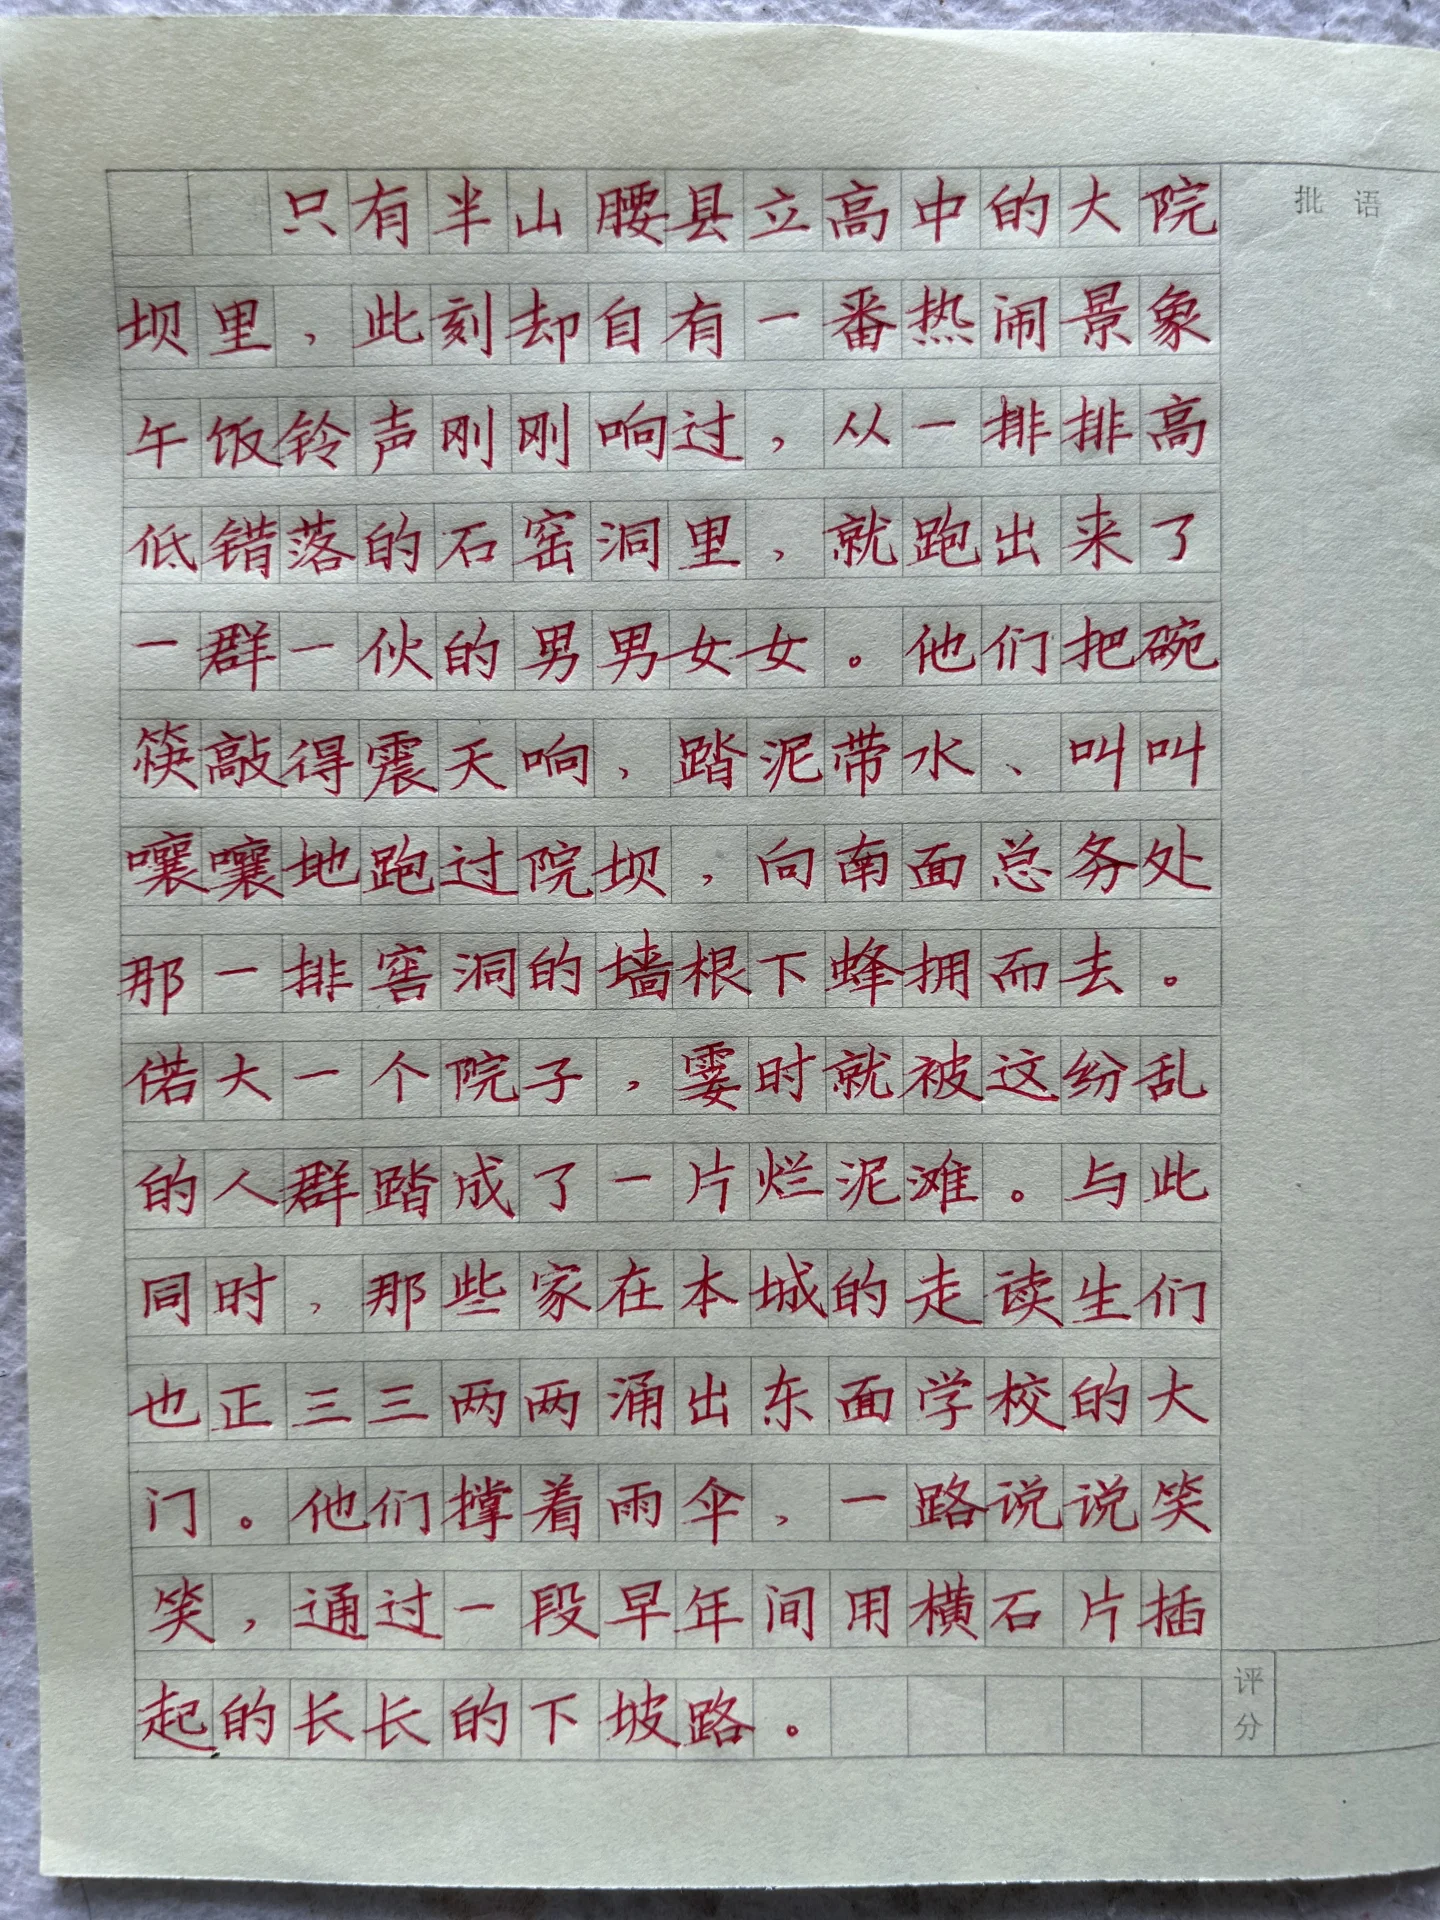 只有半山腰县立高中的大院
批语
坝里，此刻却自有一番热闹景象
午饭铃声刚刚响过，从一排排高
低错落的石窑洞里，就跑出来了
一群一伙的男男女女。他们把碗
筷敲得震天响，踏泥带水、叫叫
嚷嚷地跑过院坝，向南面总务处
那一排窖洞的墙根下蜂拥而去。
偌大一个院子，霎时就被这纷乱
的人群踏成了一片烂泥滩。与此
同时，那些家在本城的走读生们
也正三三两两涌出东面学校的大
门。他们撑着雨伞，一路说说笑
笑，通过一段早年间用横石片插
起的长长的下坡路。
评分